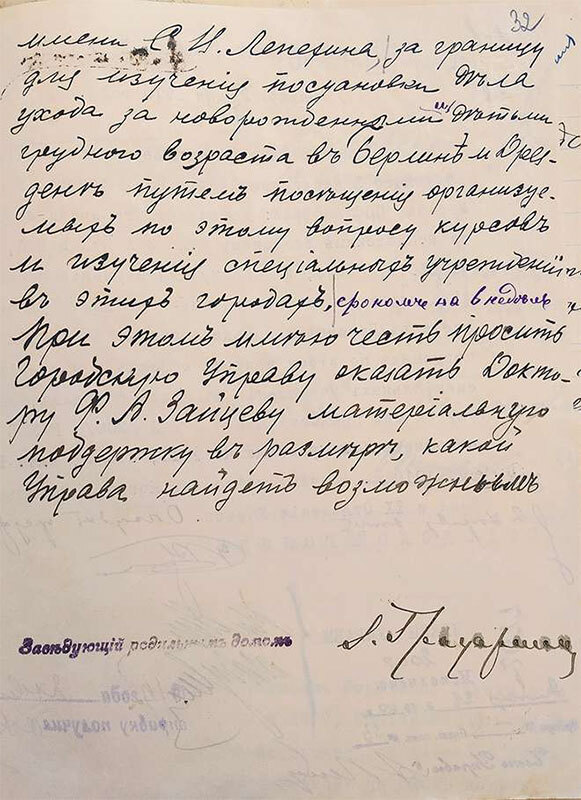 32
имени С. И. Лепехина, за границу
для изученія постановки дѣла
ухода за новорожденными дѣтьми
грудного возраста въ Берлинѣ и Дрез-
денѣ путемъ посѣщенія организуе-
мыхъ по этому вопросу курсовъ
и изученія спеціальныхъ учрежденій
въ этихъ городахъ, срокомъ на 8 недѣль
При этомъ имѣю честь просить
Городскую Управу оказать Докто-
ру Ф. А. Зайцеву матеріальную
поддержку въ размѣрѣ, какой
Управа найдетъ возможнымъ
Завѣдующій родильнымъ домомъ